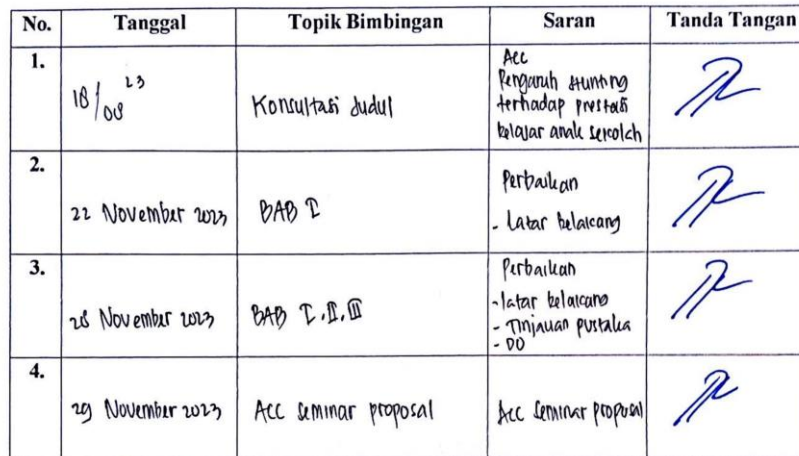 No. Tanggal Topik Bimbingan Saran Tanda Tangan
1.
18/08 23
Konsultasi Judul
Acc
Pengaruh stunting
terhadap prestasi
belajar anak sekolah
2.
22 November 2023
BAB I
Perbaikan
- Latar belakang
3.
28 November 2023
BAB I, II, III
Perbaikan
- latar belakang
- Tinjauan pustaka
- DO
4.
29 November 2023
Acc seminar proposal
Acc seminar proposal